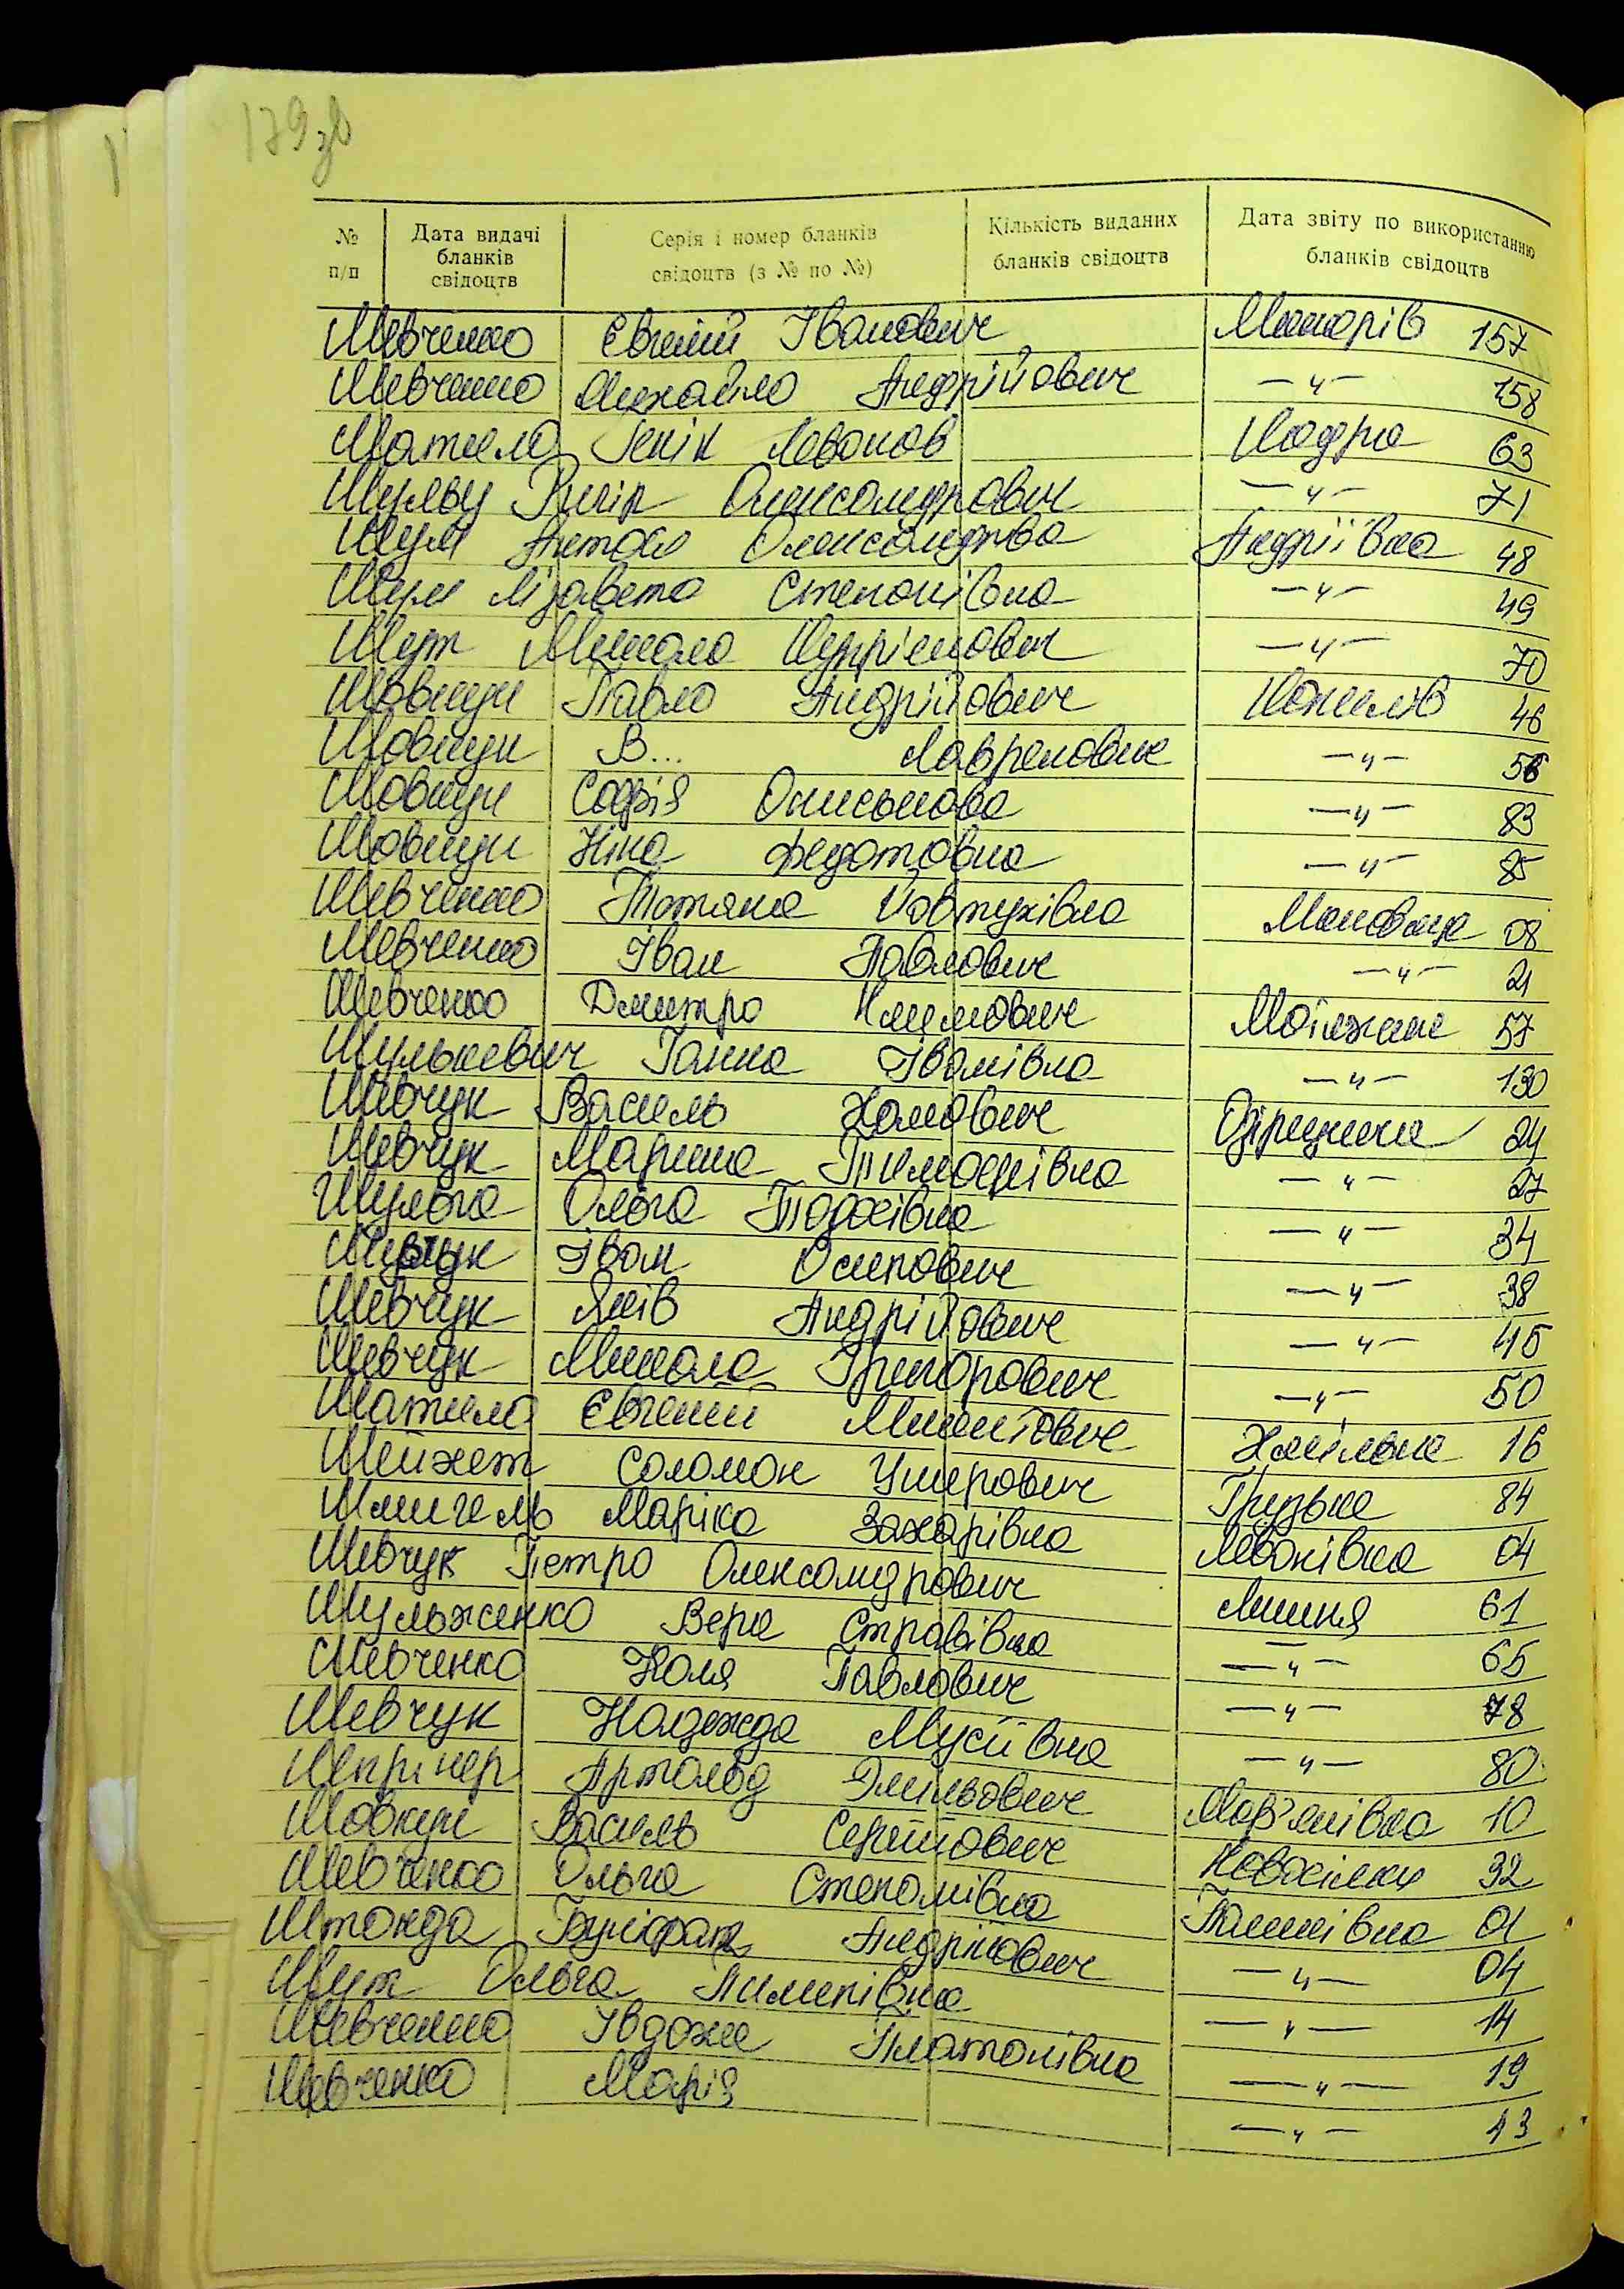 179 зв
№ п/п
Дата видачі бланків свідоцтв
Серія і номер бланків свідоцтв (з № по №)
Кількість виданих бланків свідоцтв
Дата звіту по використанню бланків свідоцтв
Шевченко Євгеній Іванович Макарів 157
Шевченко Михайло Андрійович —"— 158
Шатило Генік Левонов Надра 63
Олександрович —"— 71
Шум Олександрова Андріївка 48
Шум Лізавета Степанівна —"— 49
Шут Микола —"— 70
Шовкун Павло Андрійович 46
Шовкун В... Лавренович —"— 56
Шовкун Софія Ониськова —"— 83
Шовкун Ніна Федотовна —"— 85
Шевченко Тотяна Йовтухівна Маковище 08
Шевченко Іван Павлович —"— 21
Шевченко Дмитро Климович Мотижин 57
Шулькевич Ганна Іванівна —"— 130
Шевчук Василь Хомович 24
Шевчук Марина Тимофіївна —"— 27
Шульга Ольга Тодосівна —"— 34
Шевчук Іван Осипович —"— 38
Шевчук Яків Андрійович —"— 45
Шевчук Микола Григорович —"— 50
Шатило Євгеній Микитович Хмільна 16
Шейхет Соломон Умерович Грузька 84
Шмигель Маріка Захарівна Леонівка 04
Шевчук Петро Олександрович Липня 61
Шульженко Вера —"— 65
Шевченко Коля Павлович —"— 78
Шевчук Надежда Мусіївна —"— 80
Артольд Мар'янівка 10
Шовкун Василь Сергійович Новосілки 32
Шевченко Ольга Степанівна 01
Штонда Андрійович —"— 04
Шут Ольга Пилипівна —"— 14
Шевченко Івдоха Платонівна —"— 19
Шевченко Марія —"— 43